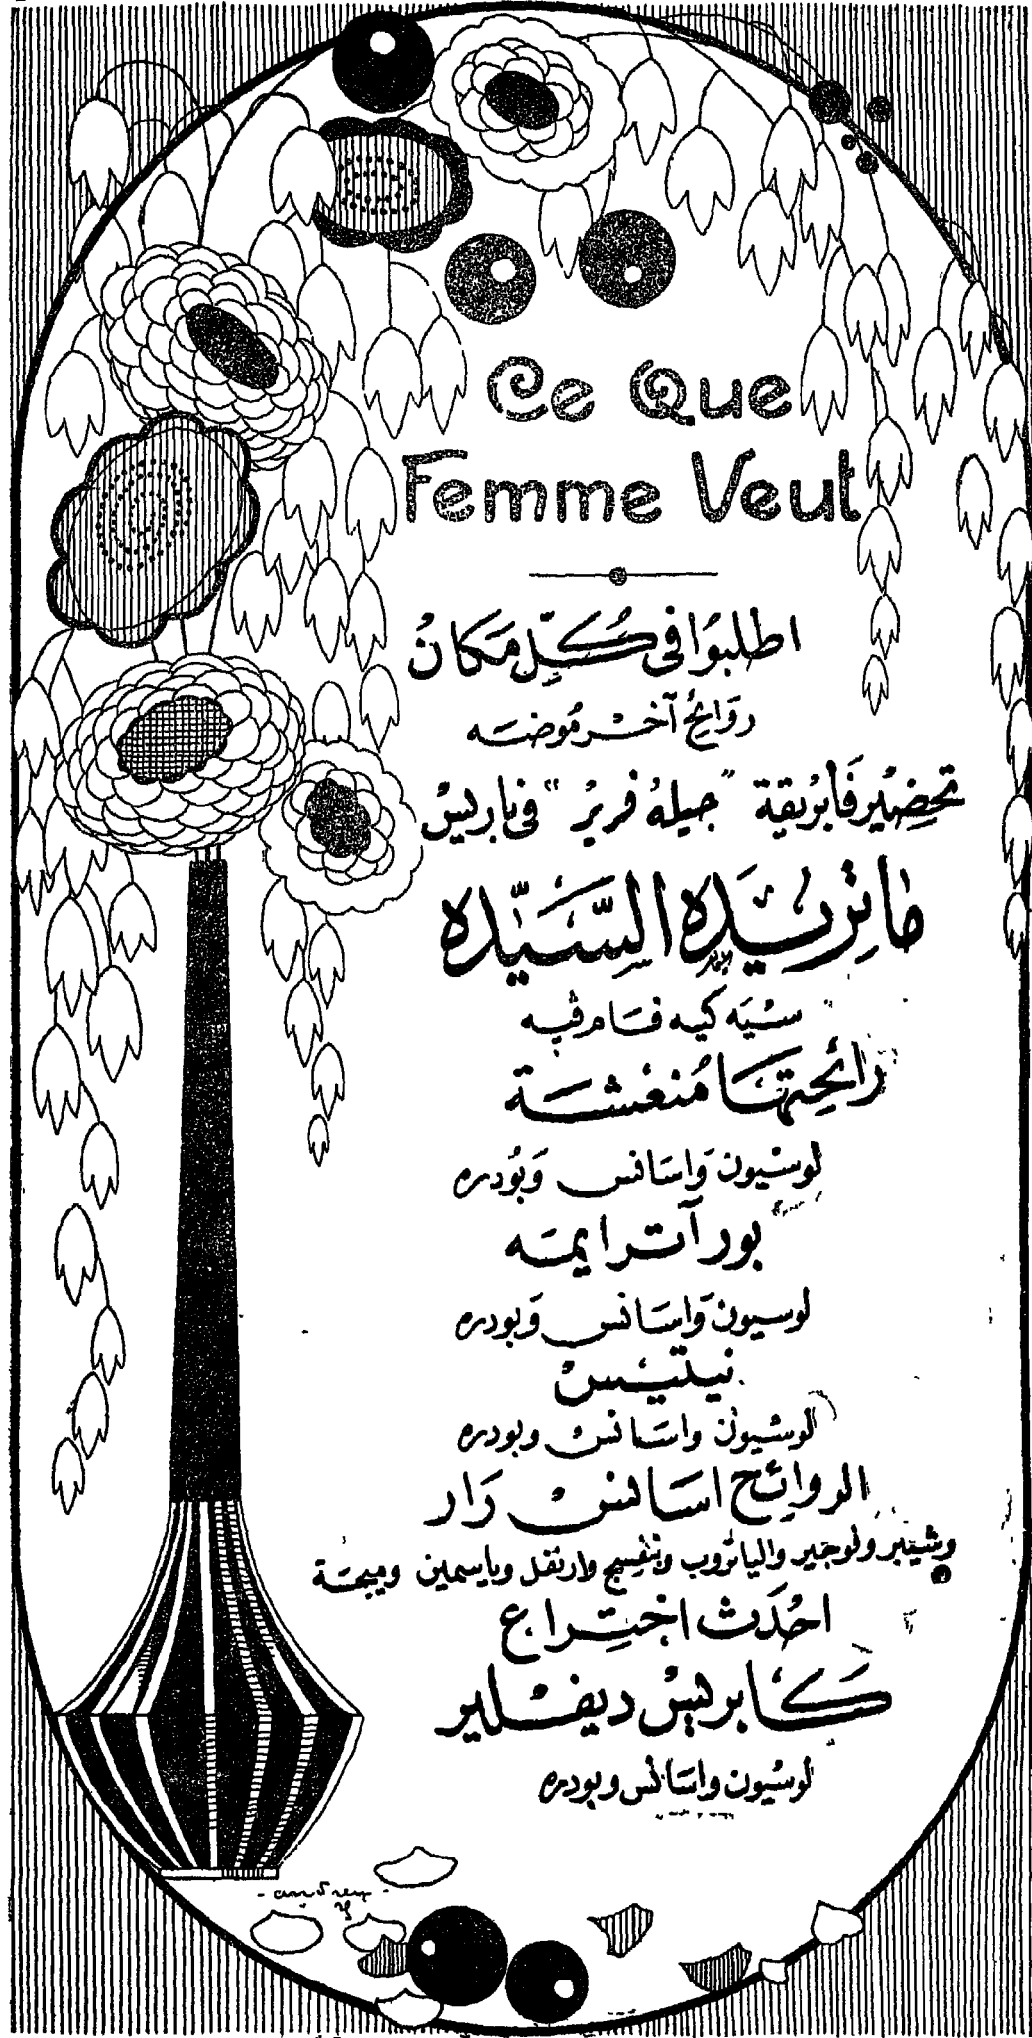 Ce Que
Femme Veut
اطلبوا فى كل مكان
روايح آخر موضه
تحضير فابريقة "جيله فرير" فى باريس
ما تريده السيده
سيه كيه فام فيه
رائحتها منعشة
لوسيون واسانس وبودره
بور آترايمه
لوسيون واسانس وبودره
نيلتيس
لوسيون واسانس وبودره
الروايح اسانس رار
وشيبر وفوجير واليانروب وبنفسج وارنفل وياسمين وميحة
احدث اختراع
كابريس ديفلير
لوسيون واسانس وبودره